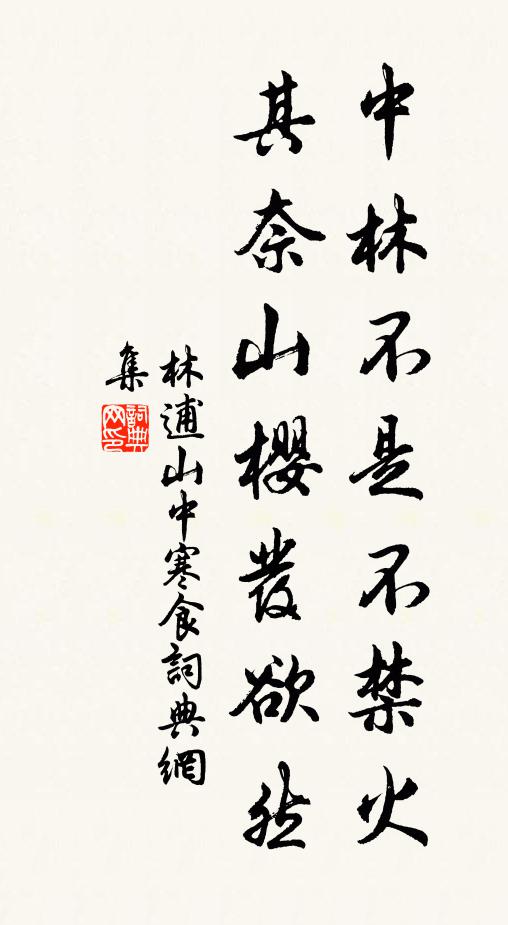 中林不是不禁火
其奈山櫻發欲然
林逋山中寒食詞典網
集
詞典网印